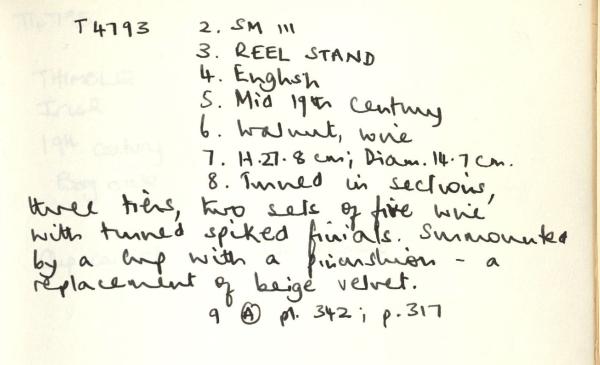 T 4793 2. SM 111
3. REEL STAND
4. English
5. Mid 19th century
6. Walnut, wire
7. H. 27.8 cm; Diam. 14.7 cm.
8. Turned in sections,
three tiers, two sets of five wire
with turned spiked finials. Surmounted
by a cup with a pincushion - a
replacement of beige velvet.
9 (A) pl. 342; p. 317
THIMBLE
19th century